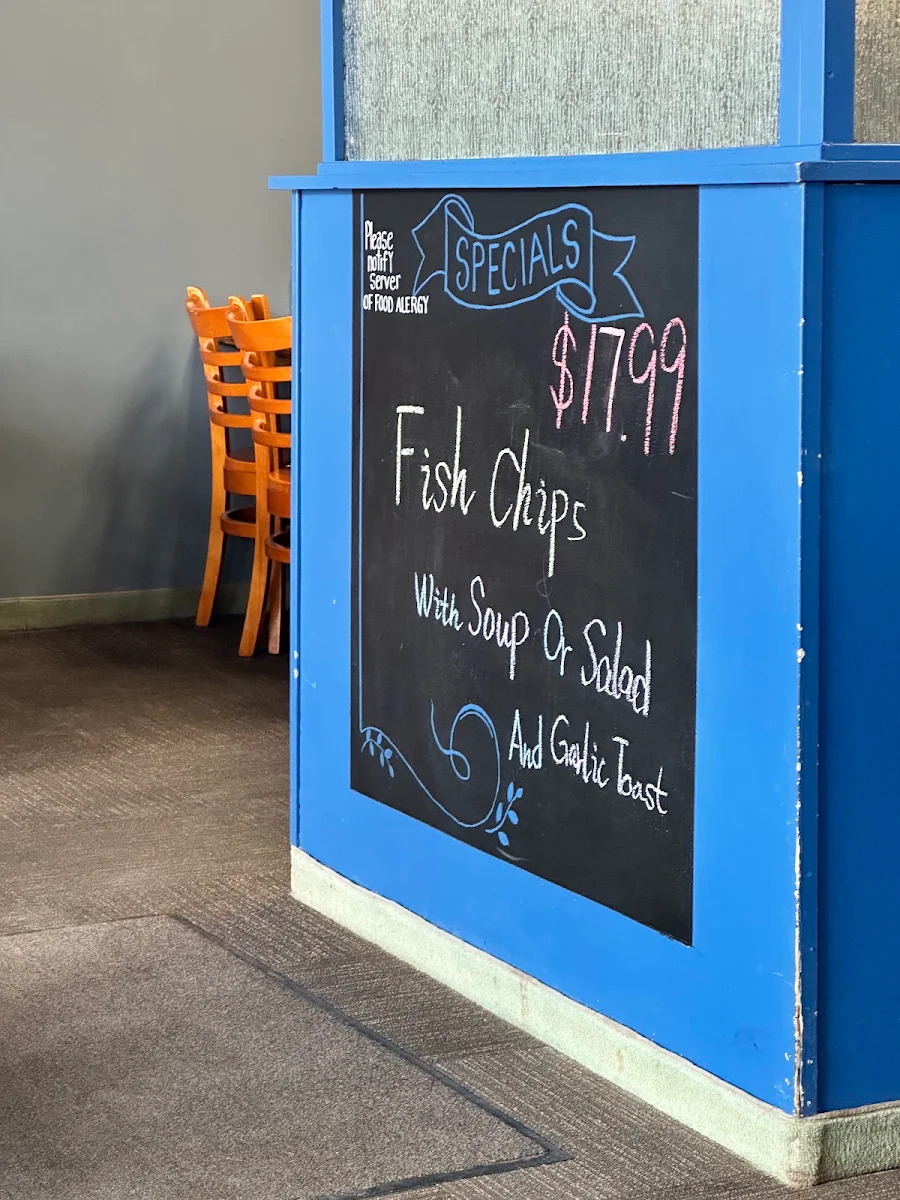 Please
notify
server
OF FOOD ALERGY
SPECIALS
$17.99
Fish Chips
With Soup Or Salad
And Garlic Toast